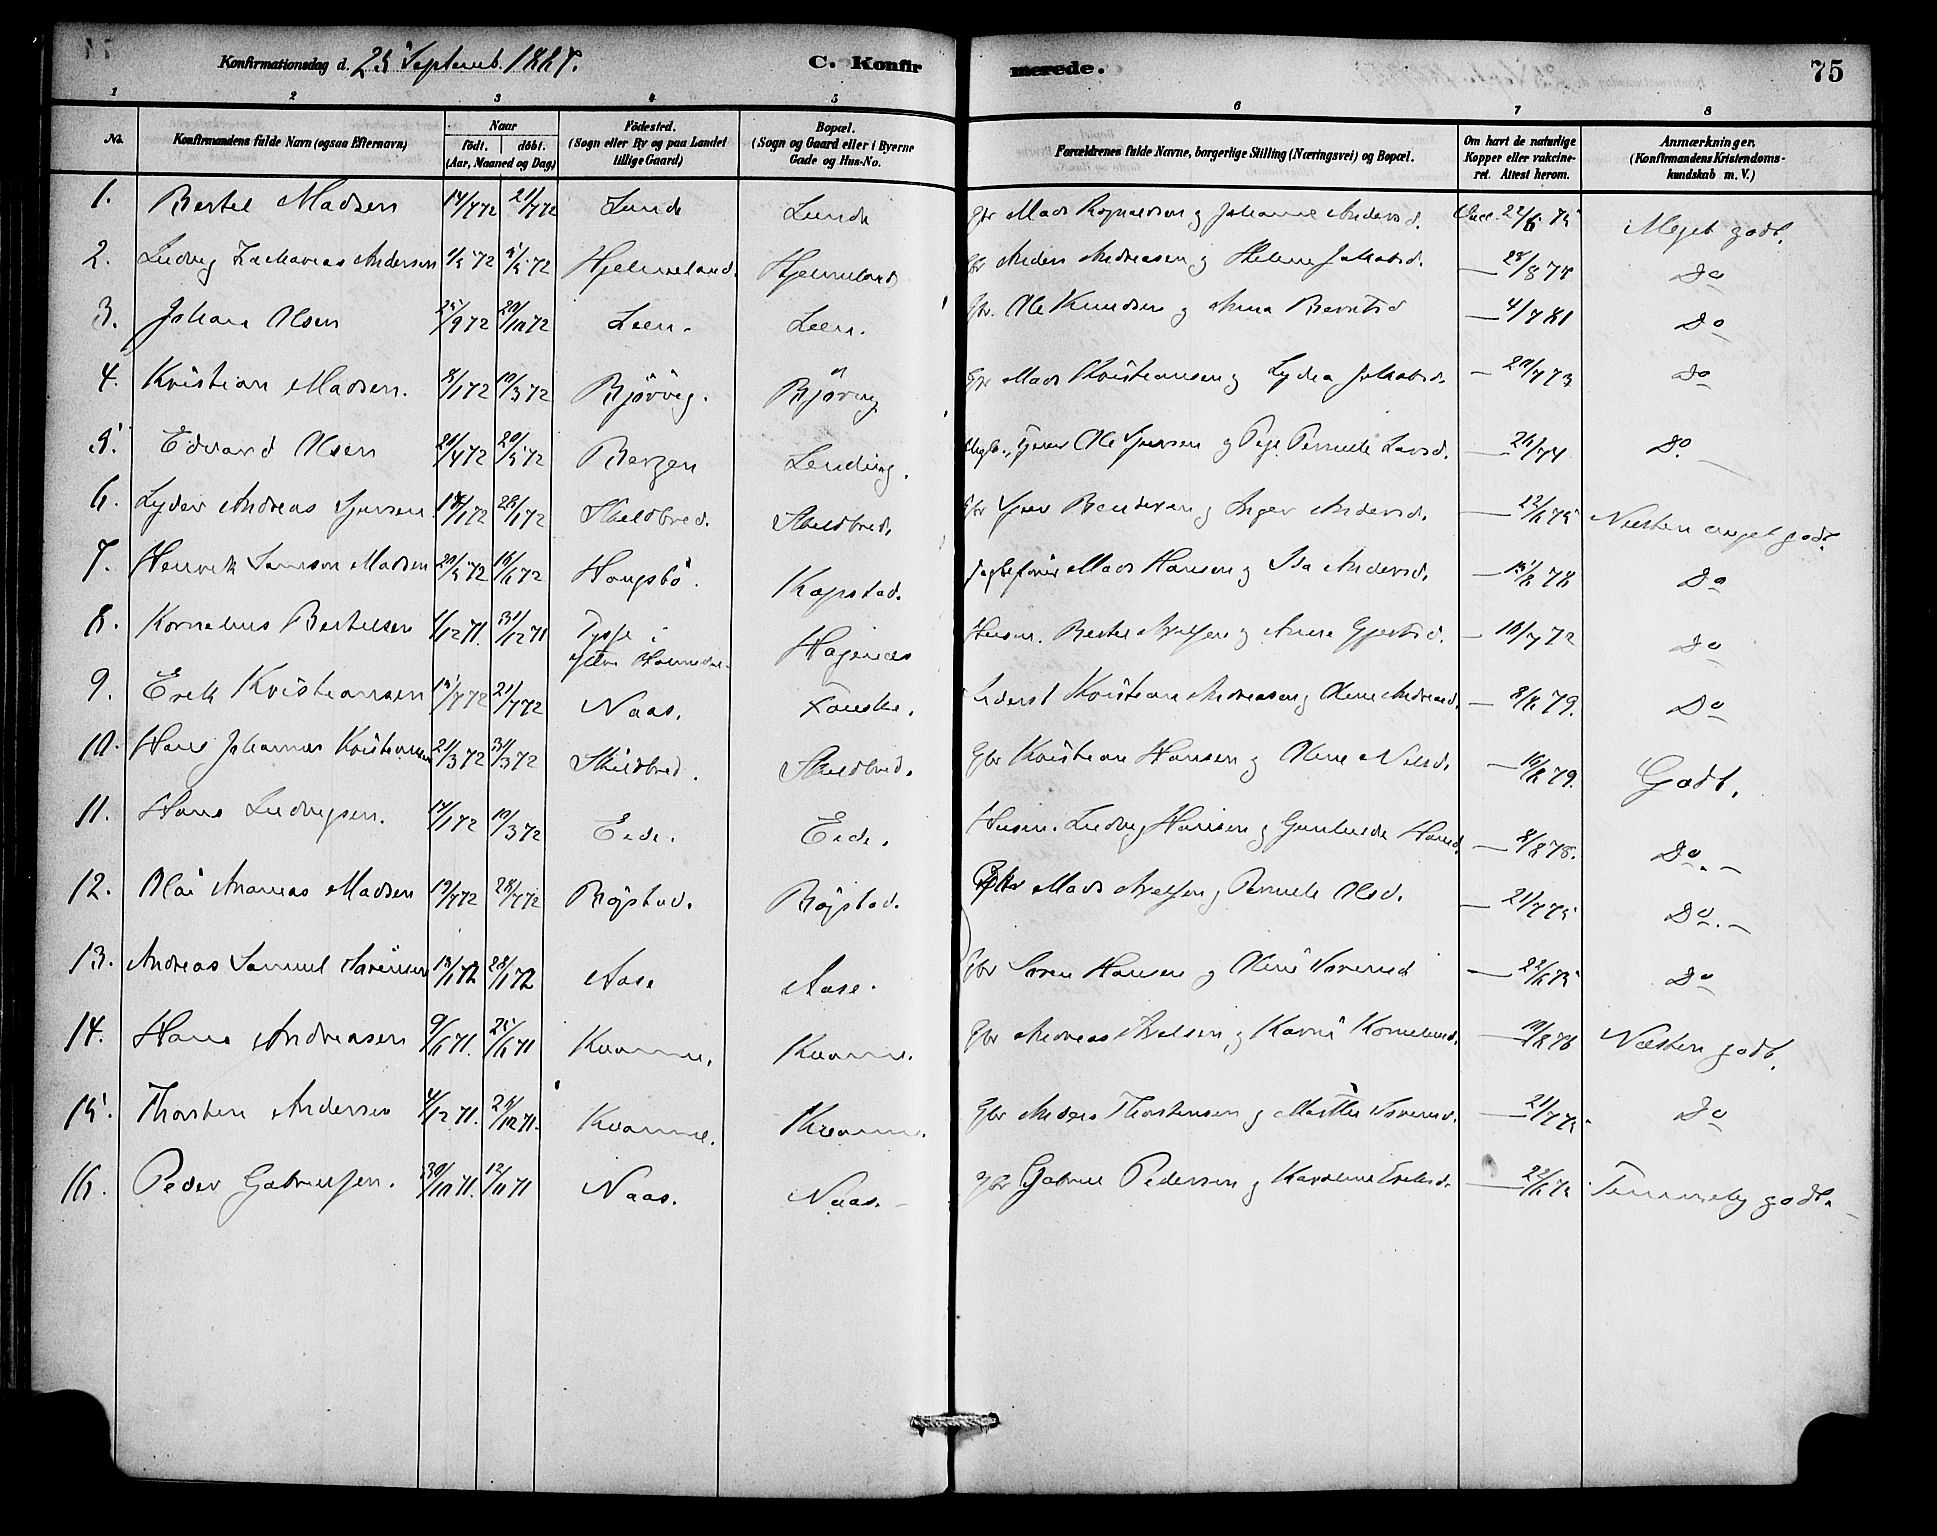 Konfirmationsdag d. 25 Septemb. 1887. C. Konfirmerede. 75
1 2 3 4 5 6 7 8
No. Konfirmandens fulde Navn (ogsaa Efternavn) Naar födt. döbt. (Aar, Maaned og Dag) Födested. (Sogn eller By og paa Landet tillige Gaard) Bopæl. (Sogn og Gaard eller i Byerne Gade og Hus-No. Forældrenes fulde Navne, borgerlige Stilling (Næringsvei) og Bopæl. Om havt de naturlige Kopper eller vakcineret. Attest herom. Anmærkninger. (Konfirmandens Kristendomskundskab m. V.)
1. Bertel Madsen 14/7 72 21/7 72 Lunde Lunde Gbr Mads Rognaldsen og Johanne Andersd. Vacc. 22/6 75 Meget godt.
2. Ludvig Zacharias Andersen 1/5 72 5/5 72 Hjelmeland. Hjelmeland Gbr Anders Andreasen og Helene Jakobsd. — 28/8 78 Do
3. Johan Olsen 25/9 72 20/10 72 Leen. Leen. Gbr. Ole Knudsen og Anna Berntsd — 4/7 81 Do
4. Kristian Madsen. 8/1 72 10/3 72 Björvig. Björvig Gbr Mads Kristiansen og Lydia Jakobsd. — 20/7 73 Do
5. Edvard Olsen 20/4 72 20/5 72 Bergen Lending. Ole Iversen og Pige Pernille Larsd. — 26/ 74 Do.
6. Lyder Andreas Iversen 18/1 72 28/1 72 Skeldbred. Skeldbred. Gbr Iver Bendixen og Inger Andersd. — 22/6 75 Næsten meget godt.
7. Henrik Samson Madsen 20/5 72 16/6 72 Hougsbö. Kopstad. Mads Hansen og Ida Andersd. — 15/8 78 Do
8. Kornelius Bertelsen 1/12 71. 31/12 71 Tysse i ytre Holmedal. Hagenæs Husm. Bertel og Anna Gjertsd. — 16/7 72 Do
9. Erik Kristiansen 15/7 72 21/7 72 Naas. Fouske. Inderst Kristian Andreasen og Oline Andreasd. — 8/8 79. Do
10. Hans Johannes Kristiansen 21/3 72 31/3 72 Skeldbred. Skeldbred. Gbr Kristian Hansen og Oline Nilsd. — 16/8 79. Godt.
11. Hans Ludvigsen. 14/1 72 10/3 72 Eide. Eide. Husm. Ludvig Hansen og Gunhilde Hansd. — 8/8 78. Do. —
12. Andreas Madsen 19/7 72 28/7 72 Röystad. Röystad. Mads Axelsen og Pernille Olsd. — 21/7 75 Do. —
13. Andreas Samuel Sörensen 18/1 72 28/1 72 Aase Aase. Gbr Sören Hansen og Oline Sörensd — 22/6 75 Do
14. Hans Andreasen 9/6 71. 25/6 71 Kvamme. Kvamme. Gbr Andreas Axelsen og Karen Korneliusd. — 10/8 76 Næsten godt.
15. Thorsten Andersen 4/12 71. 26/12 71. Kvamme. Kvamme. Gbr Anders Thorstensen og Marthe Sörensd. — 21/7 75. Do
16. Peder Gabrielsen. 30/10 71. 12/11 71 Naas. Naas. Gbr Gabriel Pedersen og Karoline Eriksd. — 22/6 75 Temmelig godt.